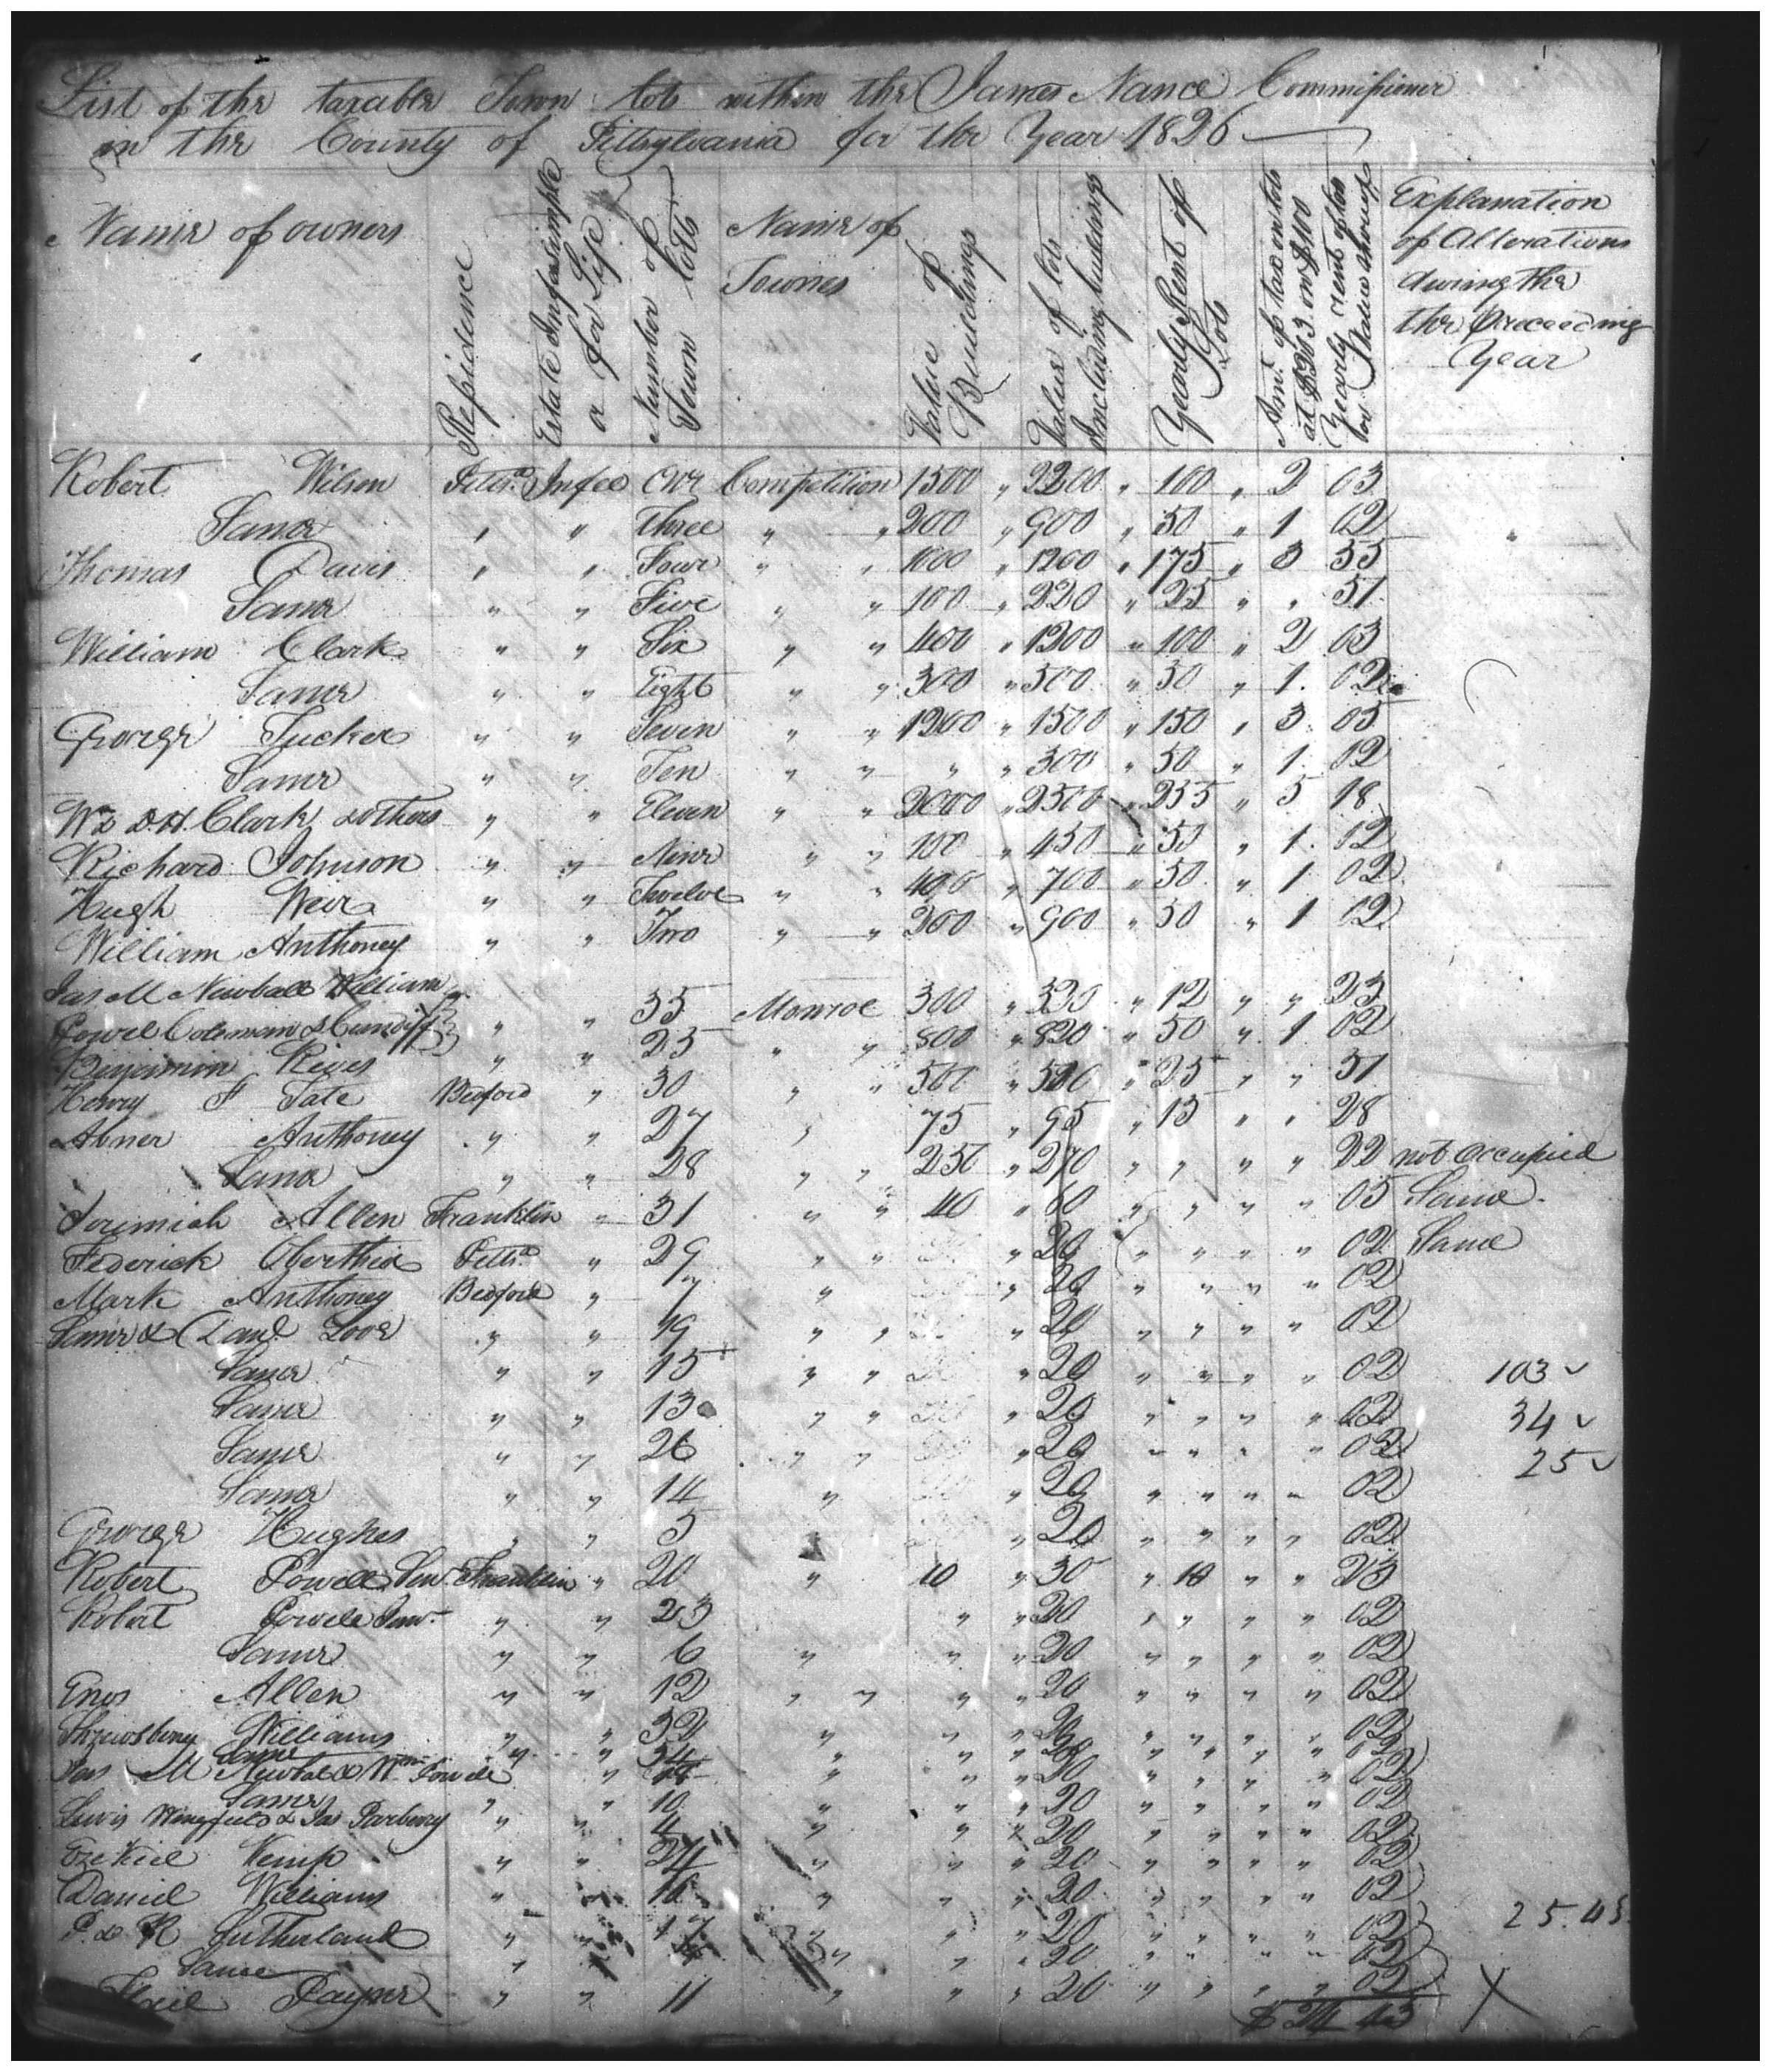 List of the taxable Town lots within the James Nance Commissioner
in the County of Pittsylvania for the Year 1826
Name of owners
Residence
Estate Infeesimple
or for Life
Number of
Town lotts
Name of
Townes
Value of
Buildings
Value of lots
Including buildings
Yearly Rent of
Lots
Amt. of tax on lots
Yearly rent of lots
Explanation
of Alterations
during the
the Preceeding
Year
Robert Wilson Pittsa. Infee One Competition 1500 " 2200 " 100 " 2 03
Same " " Three " " 200 " 900 " 50 " 1 02
Thomas Davis " " Four " " 1000 " 1200 " 175 " 3 55
Same " " Five " " 100 " 220 " 25 " " 51
William Clark " " Six " " 400 " 1200 " 100 " 2 03
Same " " Eight " " 300 " 500 " 50 " 1. 02
George Tucker " " Seven " " 1200 " 1500 " 150 " 3 05
Same " " Ten " " " " 300 " 50 " 1. 02
Wm D.H. Clark & others " " Eleven " " 2000 " 2500 " 255 " 5 18
Richard Johnson " " Nine " " 100 " 450 " 55 " 1. 12
Hugh Weir " " Twelve " " 400 " 700 " 50 " 1 02
William Anthoney " " Two " " 300 " 900 " 50 " 1 02
Jas M Newball William
Powel Coleman & Cundiff " " 35 Monroe 300 " 320 " 12 " " 23
Benjimin Rives " " 25 " " 800 " 820 " 50 " 1. 02
Henry T Tate Bedford " 30 " " 500 " 520 " 25 " " 51
Abner Anthoney " " 27 " 75 " 95 " 13 " " 28
Same " " 28 " " 250 " 270 " " " " 22 not occupied
Jeremiah Allen Franklin " 31 " " 40 " 60 " " " " 05 Same
Federick Pittsa. " 29 " " " 20 " " " " 02 Same
Mark Anthoney Bedford " 7 " " 20 " " " " 02
Same & Danl " " 19 " " " 20 " " " " 02
Same " " 15 " " " 20 " " " " 02 103
Same " " 13 " " " 20 " " " " 02 34
Same " " 26 " " " 20 " " " " 02 25
Same " " 14 " " 20 " " " " 02
George Hughes " " 5 " 20 " " " " 02
Robert Powell Sen. Franklin " 20 " 10 " 30 " 10 " " 23
Robert Powell Jun. " " 23 " " 20 " " " " 02
Same " " 6 " " " 20 " " " " 02
Enos Allen " " 12 " " " " 20 " " " " 02
Shrewsbury Williams " " 32 " " " 20 " " " " 02
Same " " 34 " " " 20 " " " " 02
Jas M Newball & Wm Powell " " " " 20 " " " " 02
Same " " 10 " " " 20 " " " " 02
Lewis Wingfield & Jas Parberry " " 4 " " " 20 " " " " 02
Ezekiel Kemp " " 24 " " " 20 " " " " 02
Daniel Williams " " 16 " " " 20 " " " " 02
P. & R Sutherland " " 17 " " " 20 " " " " 02 25.45
Same " " " " 20 " " " " 02
Payner " " 11 " " " 20 " " " " 02
$ 24 43